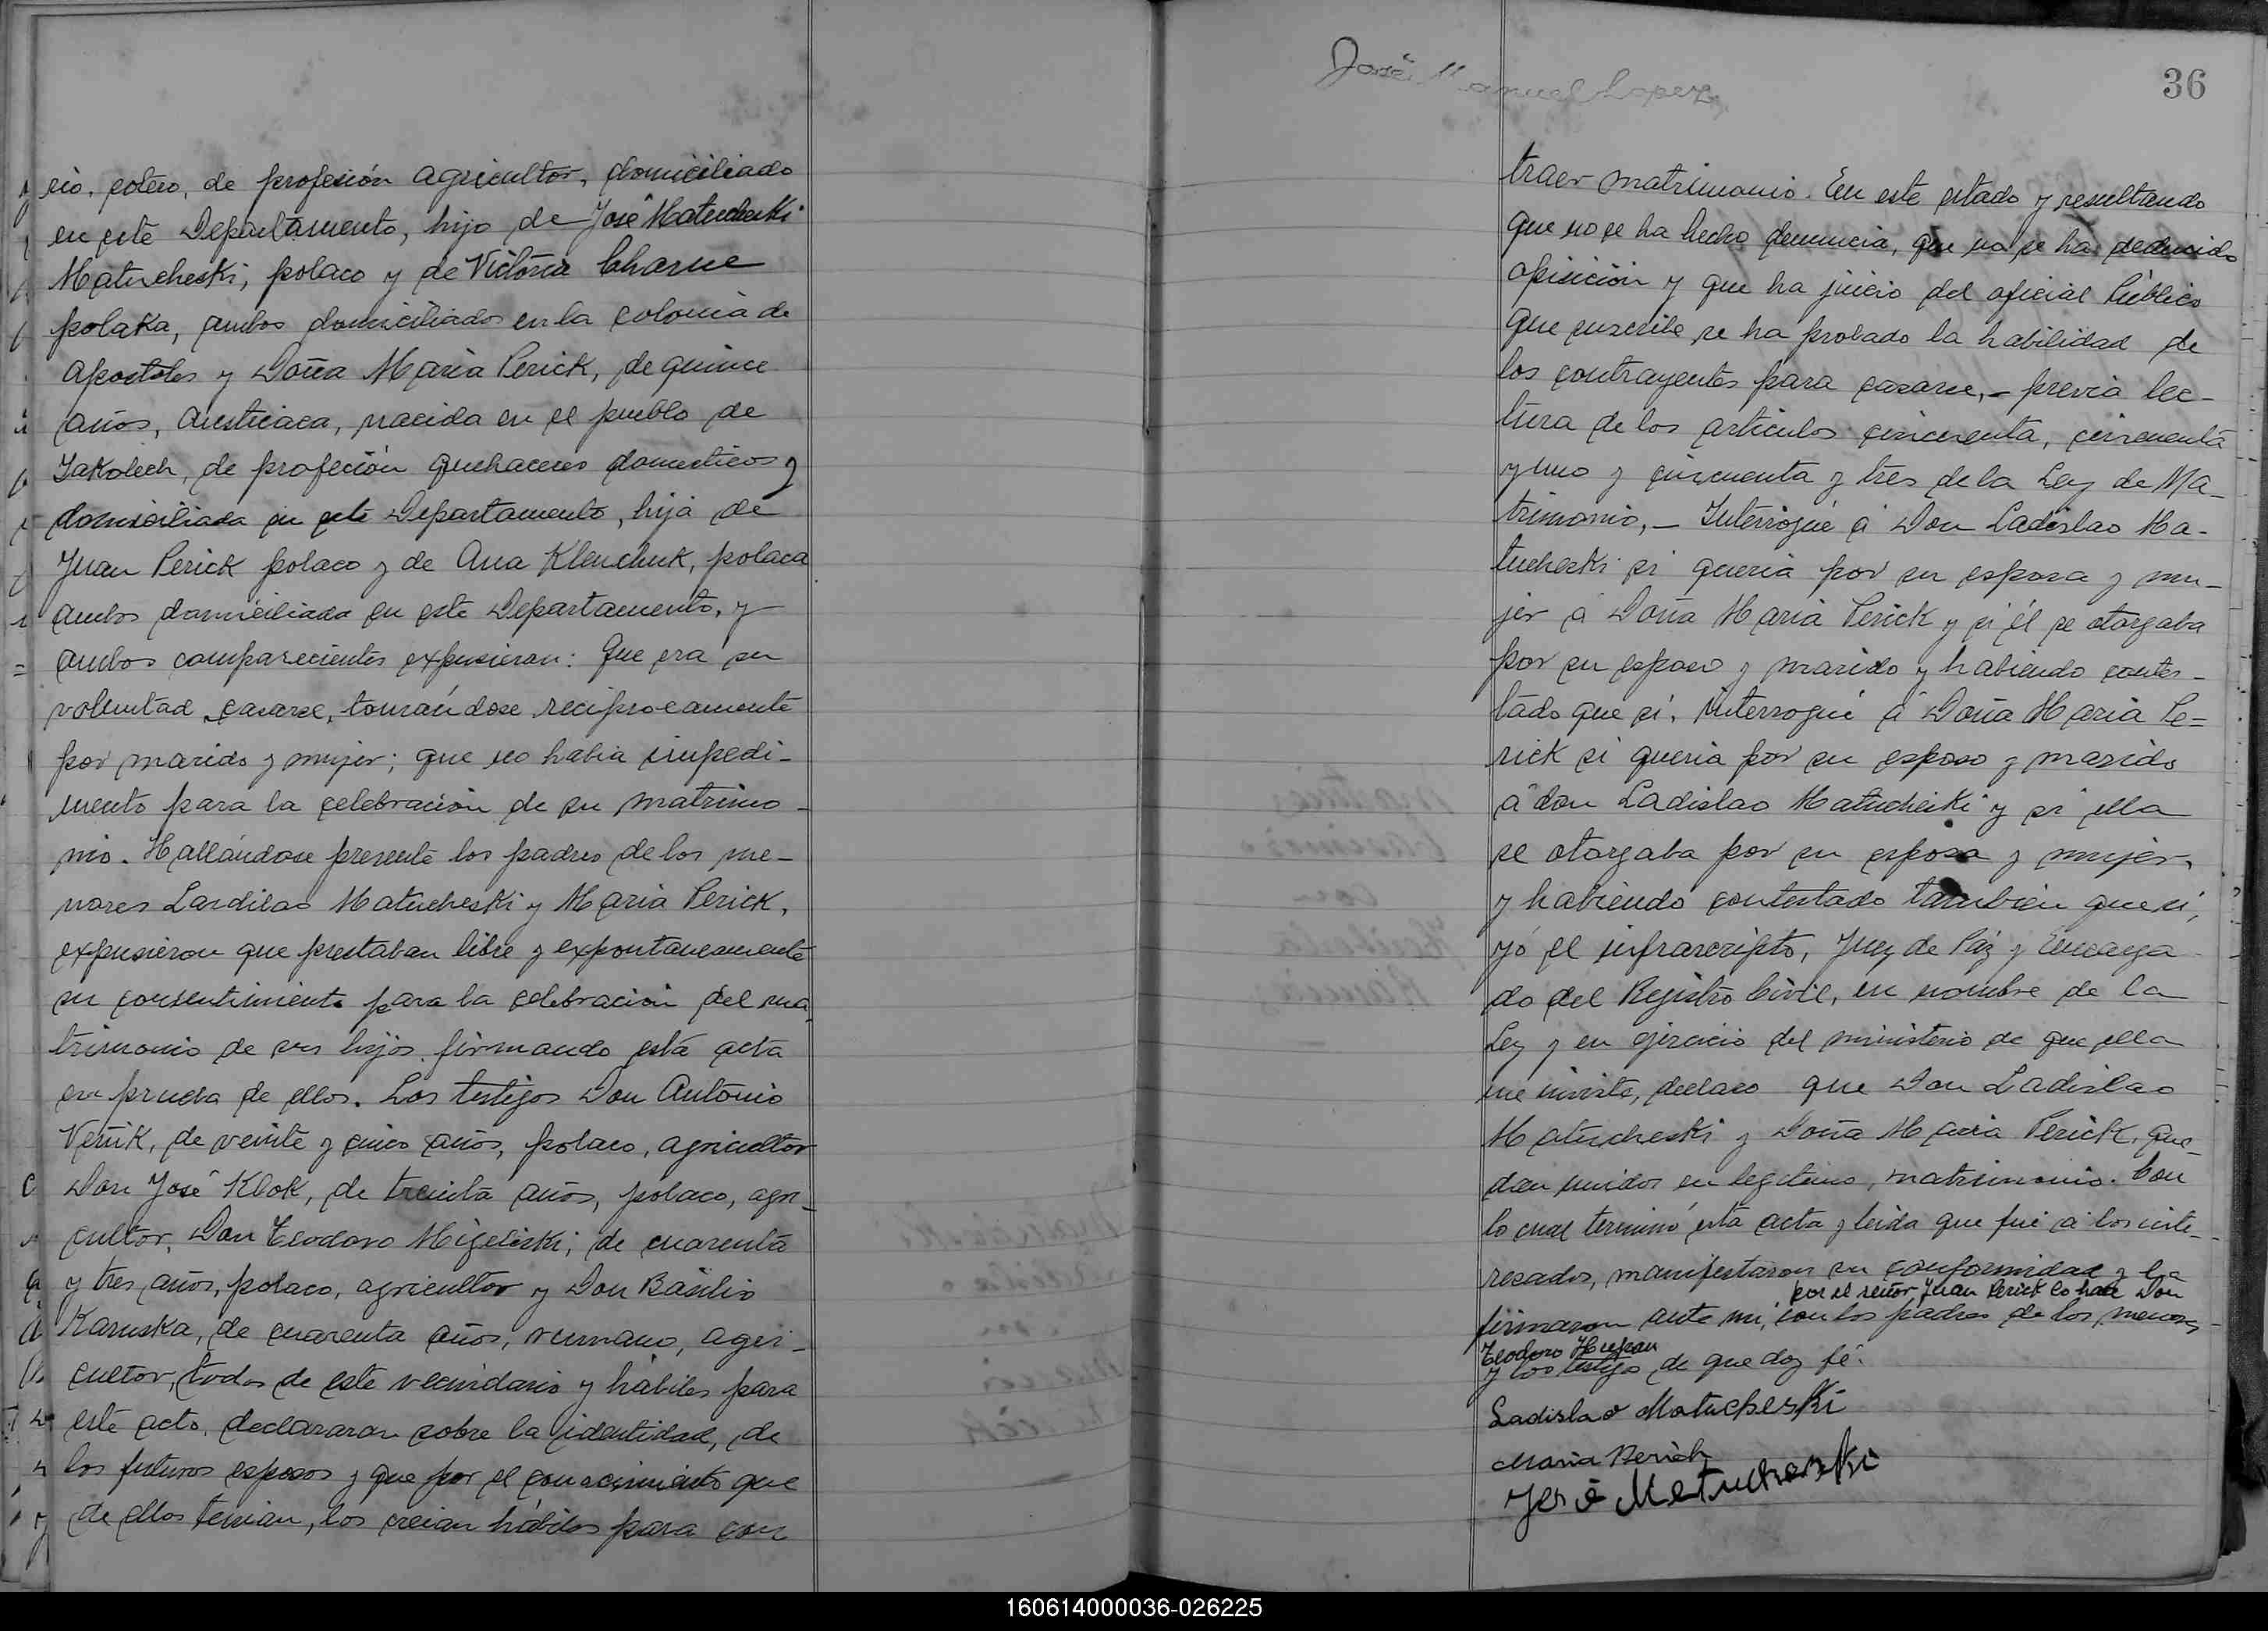 cio, soltero, de profesión agricultor, domiciliado
en este Departamento, hijo de José Matucheski
Matucheski, polaco y de Victória Charne
polaka, ambos domiciliados en la colonia de
Apostoles y Doña Maria Perick, de quince
años, Austriaca, nacida en el pueblo de
Jakolech, de profeción quehaceres domesticos y
domiciliada en este Departamento, hija de
Juan Perick polaco y de Ana Klenchuk, polaca
ambos domiciliada en este Departamento, y
ambos comparecientes expusieron: Que era su
voluntad casarse, tomándose reciprocamente
por marido y mujer; que no habia impedi-
mento para la celebración de su matrimo-
nio. Hallándose presente los padres de los me-
nores Lardilao Matucheski y Maria Perick,
expusieron que prestaban libre y expontaneamente
su consentimiento para la celebración del ma
trimonio de sus hijos firmando está acta
en prueba de ellos. Los testigos Don Antonio
Veruk, de veinte y cinco años, polaco, agricultor
Don José Klok, de treinta años, polaco, agri-
cultor, Don Teodoro Migeliski; de cuarenta
y tres años, polaco, agricultor y Don Basilio
Karuska, de cuarenta años, rumano, agri-
cultor, todos de este vecindario y hábiles para
este acto, declararon sobre la identidad, de
los futuros esposos y que por el conocimiento que
de ellos tenian, los creian hábiles para con
José Manuel Lopez
36
traer matrimonio. En este estado y resultando
que no se ha hecho denuncia, que no se ha deducido
opisición y que ha juicio del oficial Público
que suscribe se ha probado la habilidad de
los contrayentes para casarse,- previa lec-
tura de los articulos cincuenta, cincuenta
y uno y cincuenta y tres de la Ley de Ma-
trimonio,- Interrogué á Don Ladislao Ma-
tucheski si queria por su esposa y mu-
jer á Doña Maria Perick y si él se otorgaba
por su esposo y marido y habiendo contes-
tado que si, interrogué á Doña Maria Pe=
rick si queria por su esposo y marido
á don Ladislao Matucheiki y si ella
se otorgaba por su esposa y mujer,
y habiendo contestado tambien que si,
yó el infrascripto, Juez de Páz y Encarga
do del Registro Civil, en nombre de la
Ley y en ejercicio del ministerio de que ella
me inviste, declaro que Don Ladislao
Matucheski y Doña Maria Perick, que-
dan unidos en legitimo, matrimonio. Con
lo cual terminó esta acta y leida que fué á los inte-
resados, manifestaron su conformidad y la
por el señor Juan Perick lo hace Don
firmaron ante mi, con los padres de los menores
Teodoro Hupan
y los testigo de que doy fé.
Ladislao Matucheski
Maria Perick
José Matucheski
160614000036-026225